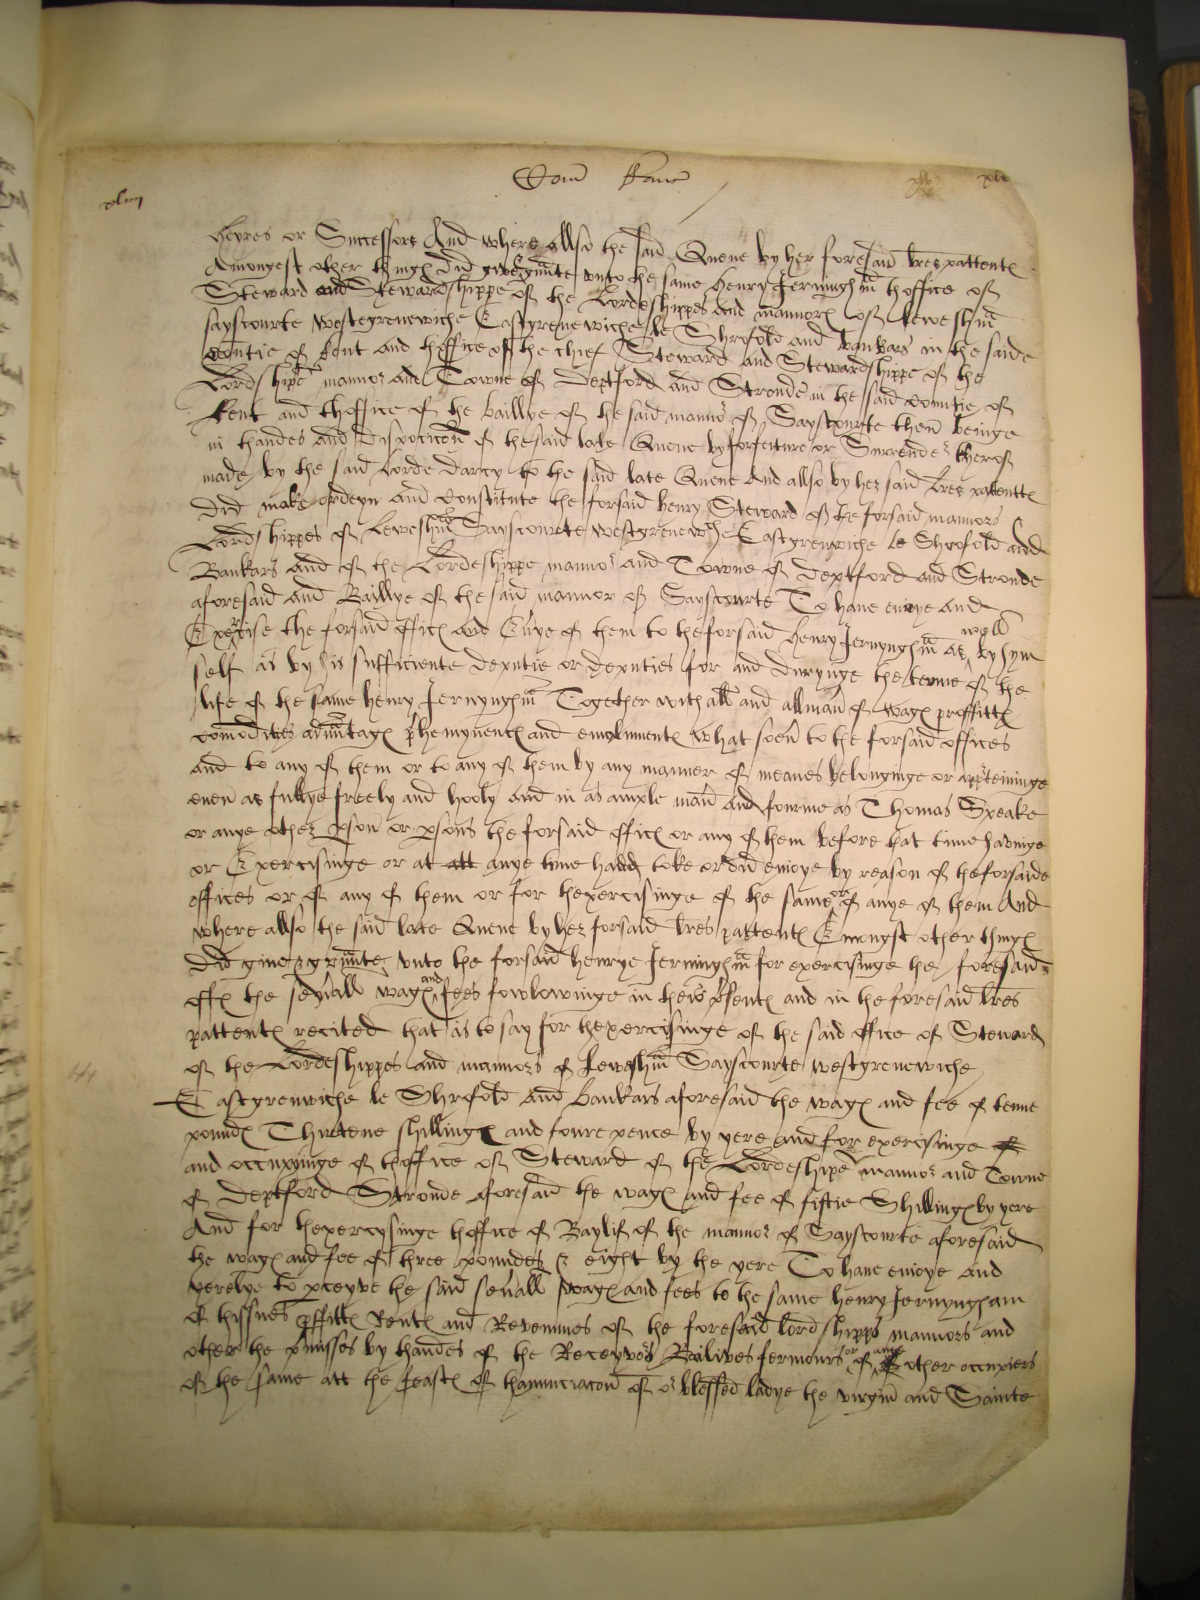 Com Kanc
heyres or Successors And where allso the said Quene by her foresaid lres pattentes
Amongest other things did give & graunte unto the same Henry Jerninghm thoffice of
Steward and Stewardshippe of the Lordeshippes and mannors of Leweshm
sayscourte westegrenewiche Eastgrenewiche le Shrofold and bankars in the saide
Countie of Kent and thoffice of the chief Steward and Stewardshippe of the
Lordshipe mannor and Towne of Deptford and Stronde in the said Countie of
Kent and thoffice of the baillye of the said mannor of Sayscourte then beinge
in thandes and disposicon of the said late Quene by forfeiture or Surrender therof
made by the said Lorde Darcy to the said late Quene And allso by her said lres pattentes
did make ordeyn and Constitute the forsaid henry Steward of the forsaid mannors
Lordshippes of Leweshm Sayscourte westgrenewche Eastgrenwiche le Shrofold and
Bankars and of the Lordeshippe mannor and Towne of Deptford and Stronde
aforesaid and Baillye of the said mannor of Sayscourte To have enioye and
Exercise the forsaid offices and Evrye of them to the forsaid henry Jernynghm as well by hym
self as by his sufficiente deputie or deputies for and durynge the terme of the
life of the same henry Jernynghm Together with all and all man of wages proffittes
comodities advuntages prhemynentes and emolumentes what soev to the forsaid offices
and to any of them or to any of them by any manner of meanes belonginge or apperteininge
even as fullye freely and hooly and in as ample man and fourme as Thomas Speake
or anye other pson or psons the forsaid offices or any of them before that time havinge
or Exercisinge or at att anye time hadd toke or did enioye by reason of the forsaide
offices or of any of them or for thexercisinge of the same or of anye of them And
where allso the said late Quene by her forsaid lres pattentes Emongst other thinges
did give & graunte unto the forsaid henrye Jerninghm for exercisinge the foresaid
offices the sevall wages and fees fowlowinge in theis psentes and in the foresaid lres
pattentes recited that is to say for thexercisinge of the said office of Steward
of the Lordeshippes and mannors of Leweshm Sayscourte westgrenewiche
Eastgrenwiche le Shrofold and bankars aforesaid the wages and fee of tenne
poundes Thirtene shillinges and foure pence by yere and for exercisinge of
and occupyinge of thoffice of Steward of the Lordeshipe mannor and Towne
of Deptford Stronde aforesaid the wages and fee of fiftie Shillinges by yere
And for thexercysinge thoffice of Baylif of the mannor of Sayscourte aforesaid
the wages and fee of three poundes & eight by the yere To have enioye and
yerelye to pceyve the said sevall wages and fees to the same henry Jernyngham
of thissues pffittes Rentes and Revennues of the foresaid lordshipps mannors and
other the pmisses by thandes of the Receyvors Bailives fermours or of any other occupiers
of the same att the feastes of thannuciacon of or blessed ladye the virgin and Sainte